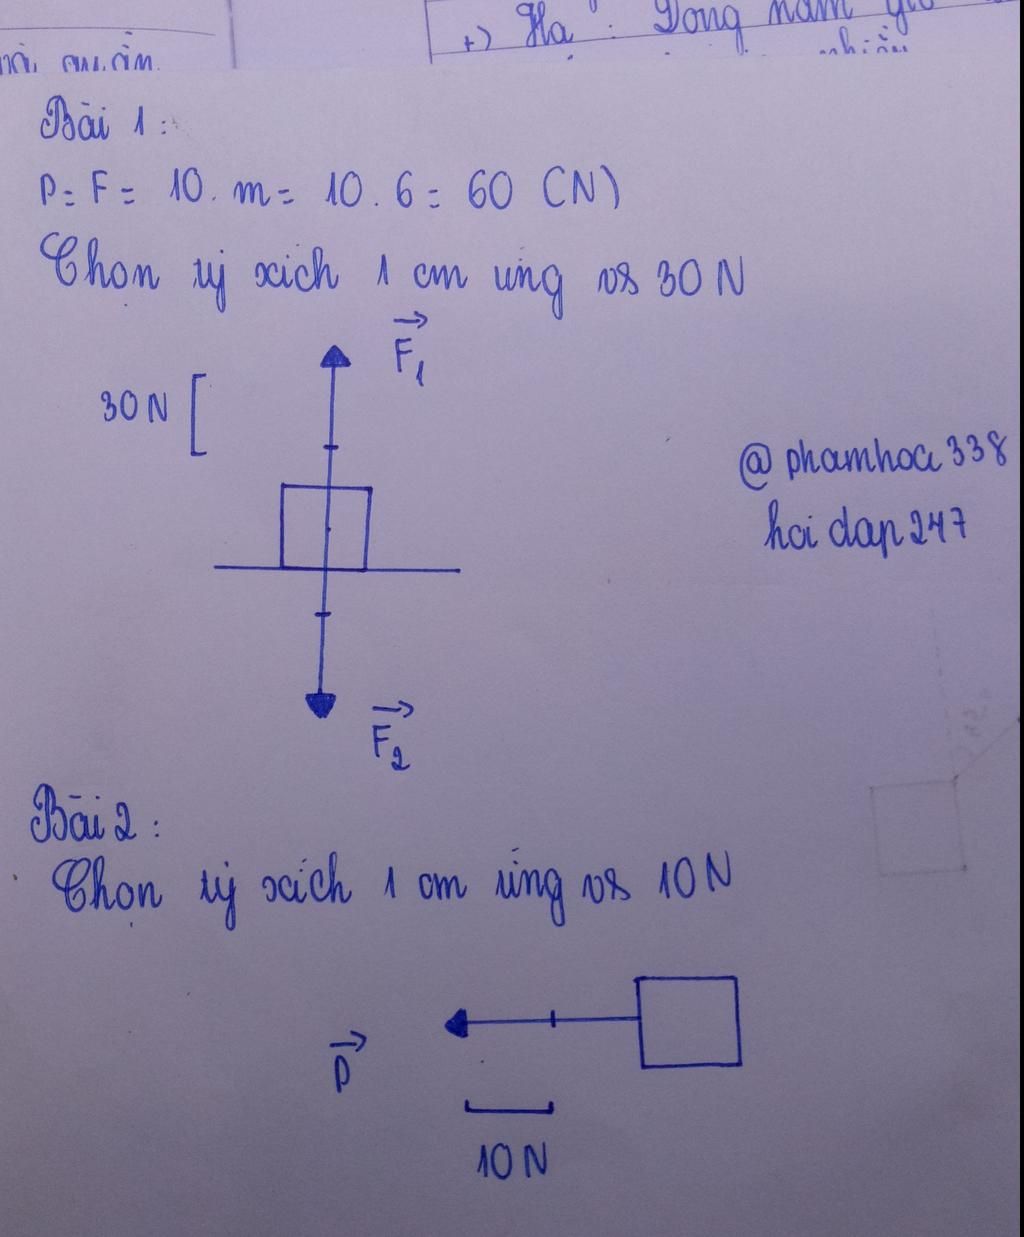 +) Hạ : Đong nam
Bài 1:
P = F = 10. m = 10 . 6 = 60 (N)
Chọn tỷ xích 1 cm ứng vs 30 N
F₁
30 N
@phamhoa338
hoidap247
F₂
Bài 2:
Chọn tỷ xích 1 cm ứng vs 10 N
P
10 N